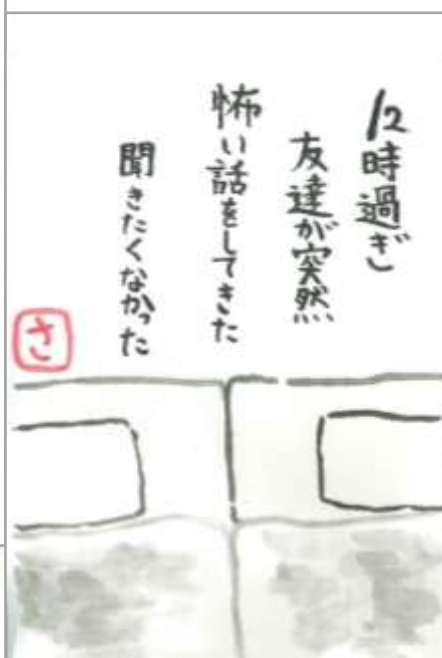 12時過ぎ
友達が突然
怖い話をしてきた
聞きたくなかった
さ